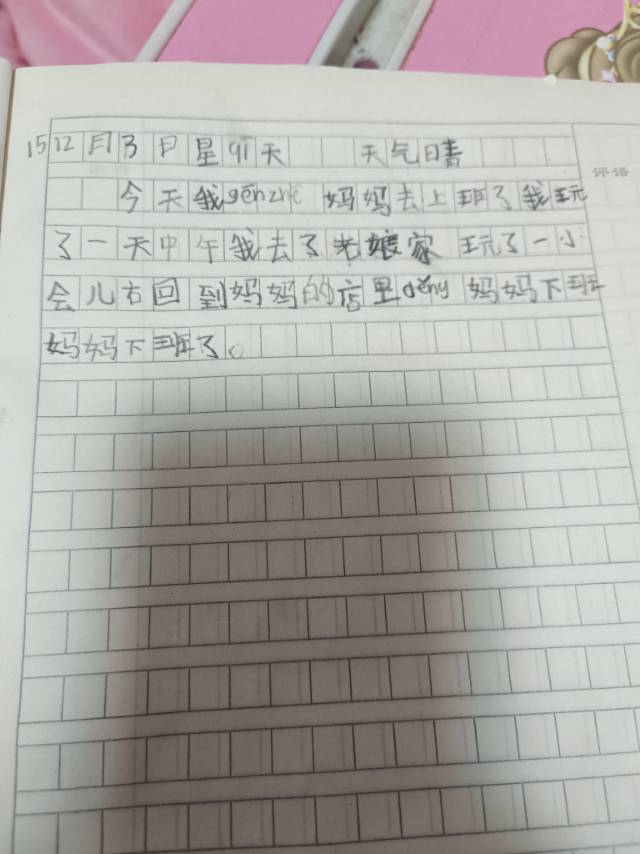 15 12月3日星qi天 天气晴
评语
今天我gēnzhe 妈妈去上班了我玩
了一天中午我去了老娘家 玩了一小
会儿右回到妈妈的店里děng 妈妈下班
妈妈下班了。